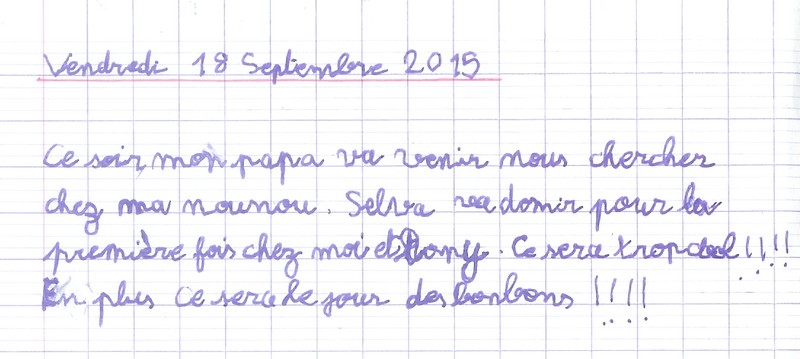 Vendredi 18 Septembre 2015
Ce soir, mon papa va venir nous chercher
chez ma nounou. Selva va domir pour la
première fois chez moi et Rony. Ce sera trop cool !!!!
En plus ce sera le jour des bonbons !!!!